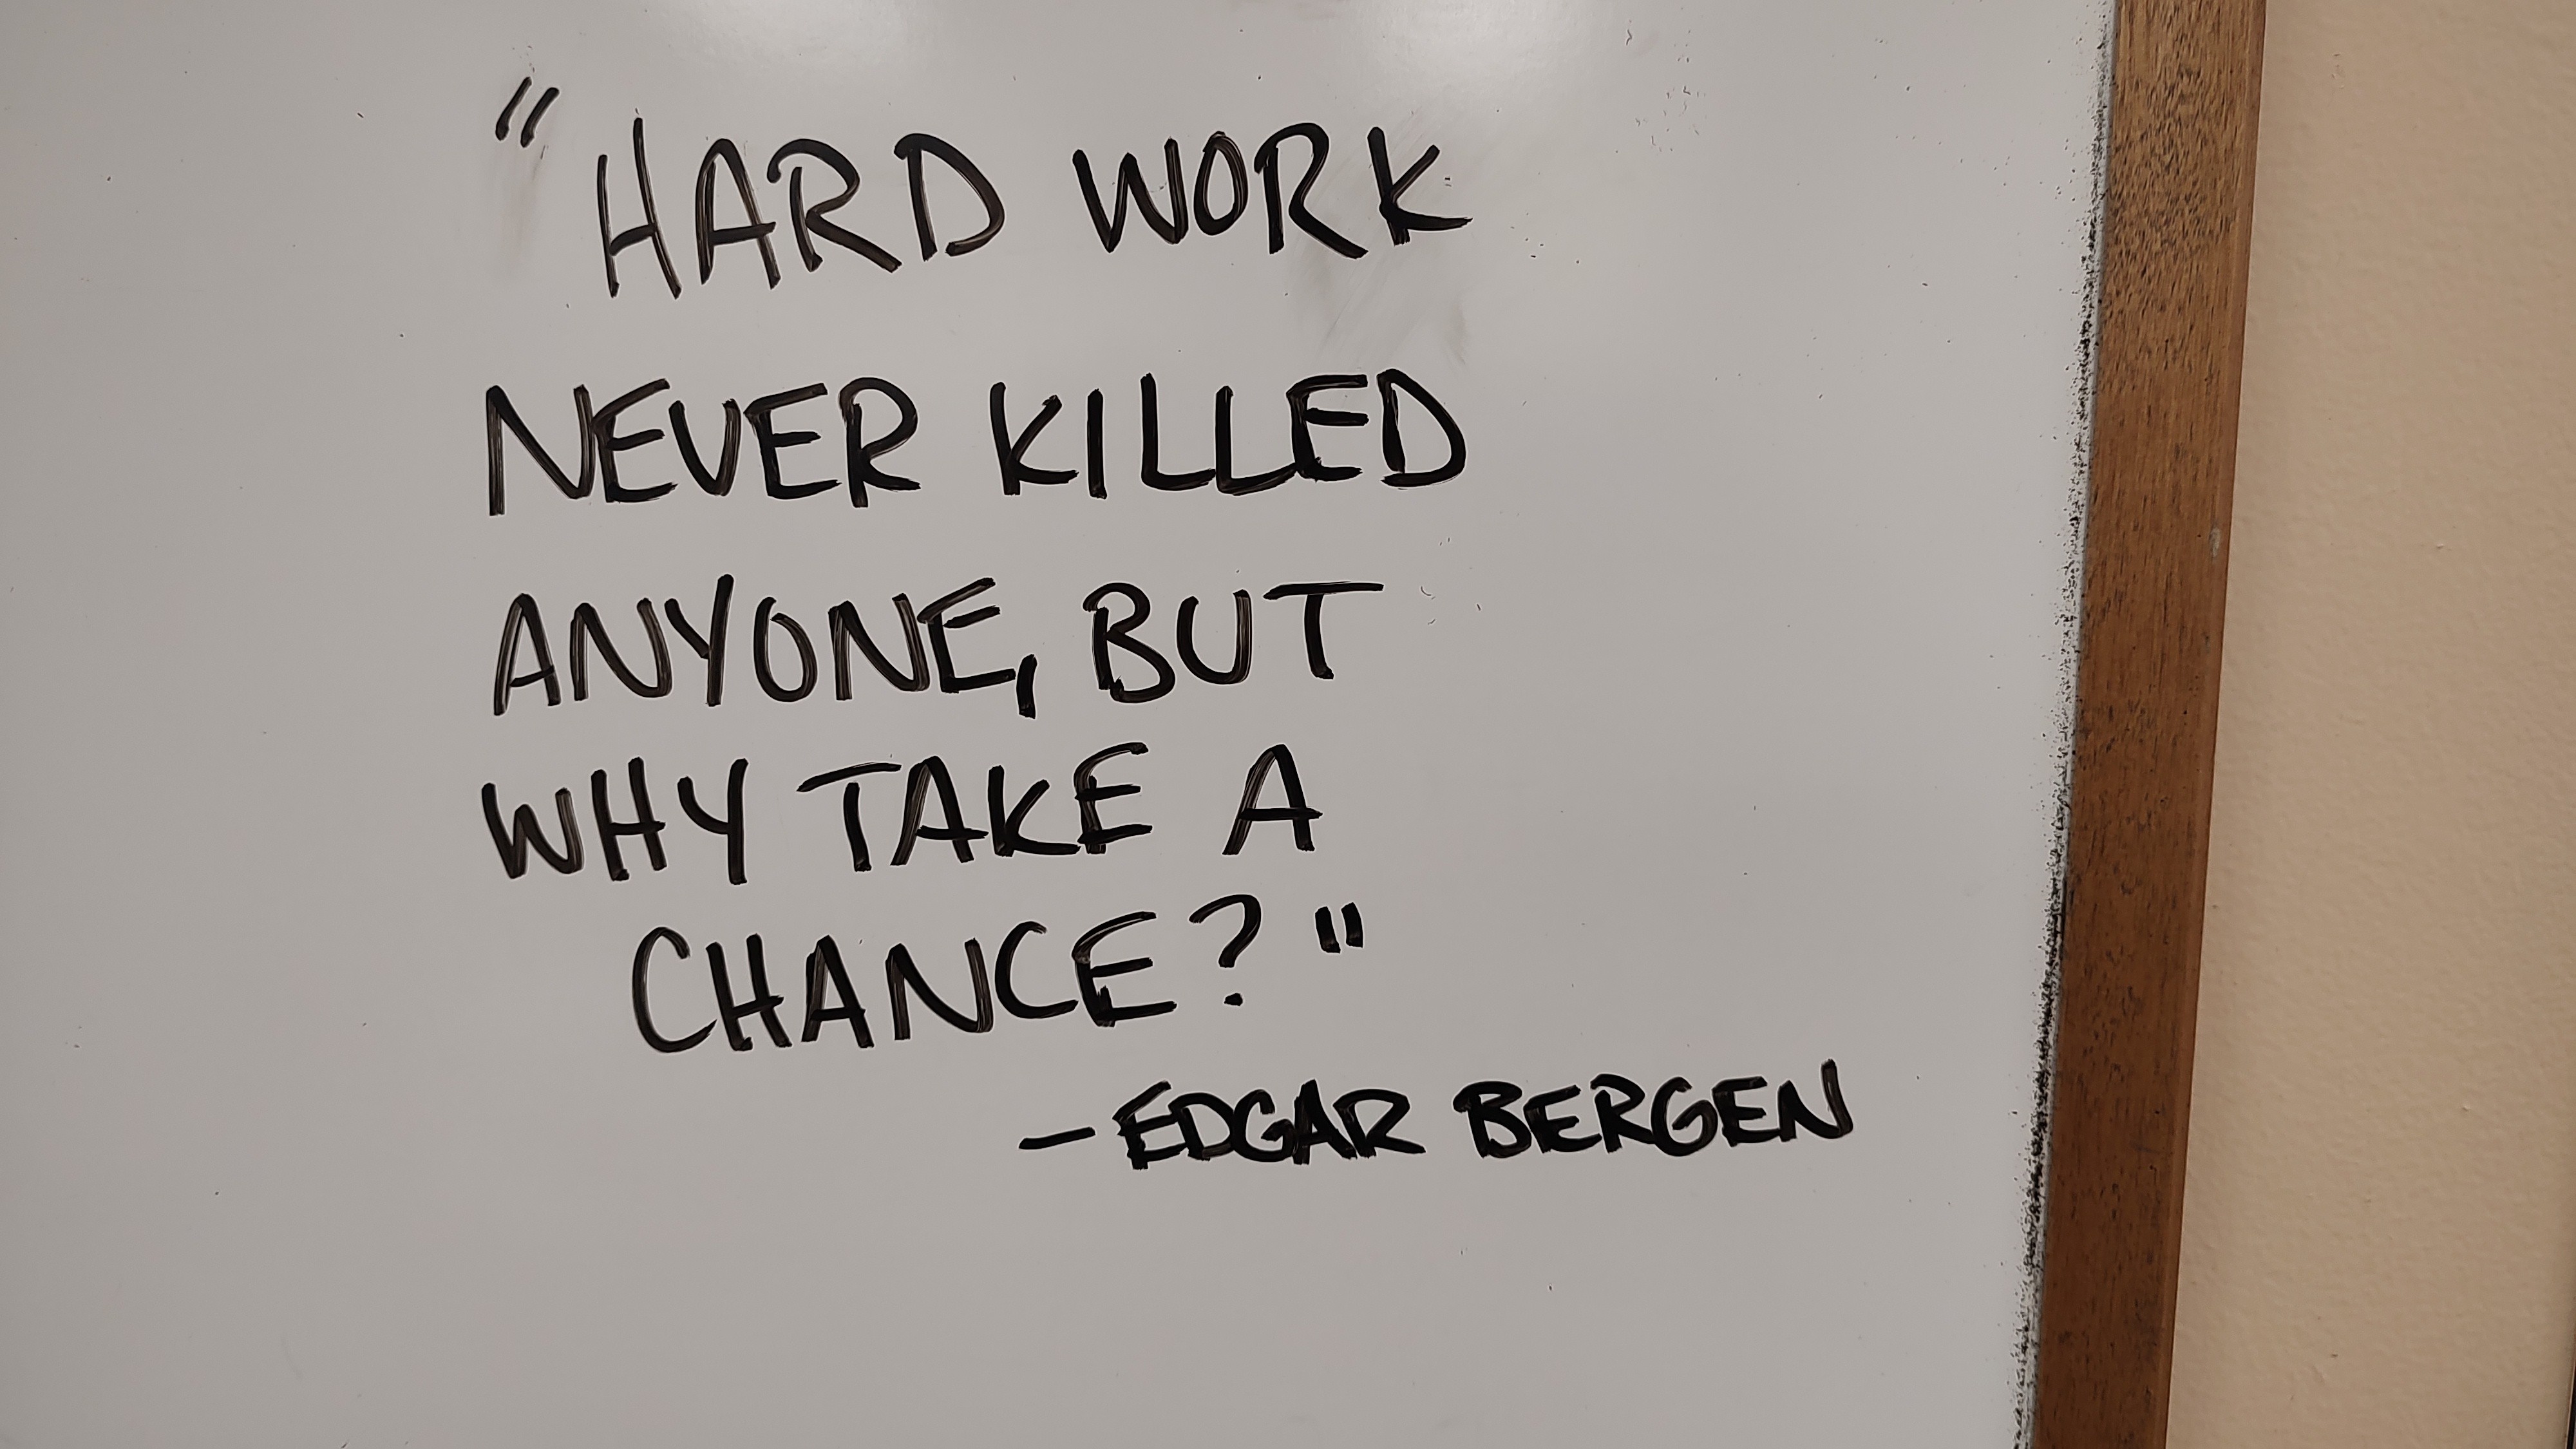 "HARD WORK
NEVER KILLED
ANYONE, BUT
WHY TAKE A
CHANCE?"
-EDGAR BERGEN